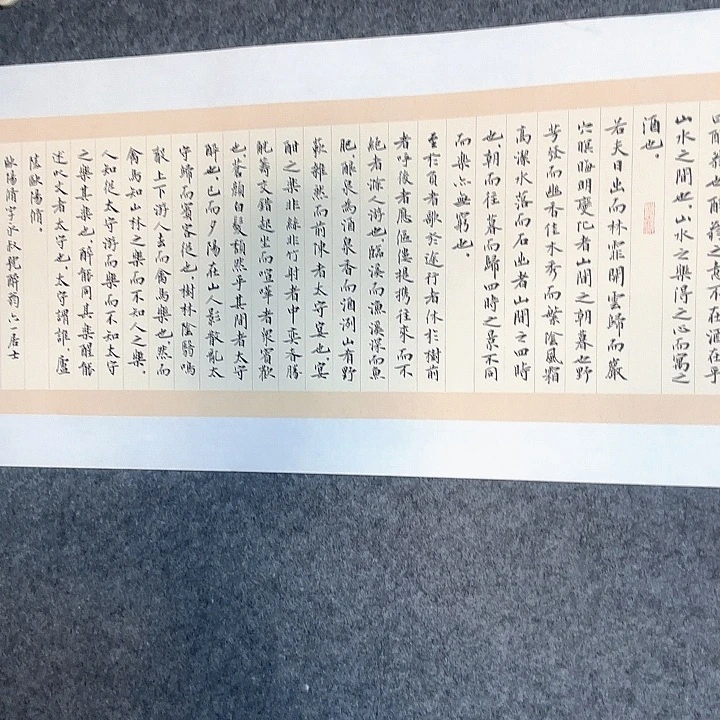 醉翁也醉翁之意不在酒在乎
山水之間也。山水之樂得之心而寓之
酒也。
若夫日出而林霏開雲歸而巖
穴暝晦明變化者山間之朝暮也野
芳發而幽香佳木秀而繁陰風霜
高潔水落而石出者山間之四時
也，朝而往暮而歸四時之景不同
而樂亦無窮也。
至於負者歌於途行者休於樹前
者呼後者應傴僂提攜往來而不
絕者滁人游也，臨溪而漁溪深而魚
肥，釀泉為酒泉香而酒洌山肴野
蔌雜然而前陳者太守宴也，宴
酣之樂非絲非竹射者中弈者勝
觥籌交錯起坐而喧嘩者眾賓歡
也，蒼顏白髮頹然乎其間者太守
醉也已而夕陽在山人影散亂太
守歸而賓客從也樹林陰翳鳴
聲上下游人去而禽鳥樂也，然而
禽鳥知山林之樂而不知人之樂，
人知從太守游而樂而不知太守
之樂其樂也，醉能同其樂醒能
述以文者太守也，太守謂誰，廬
陵歐陽脩。
歐陽脩字永叔號醉翁六一居士